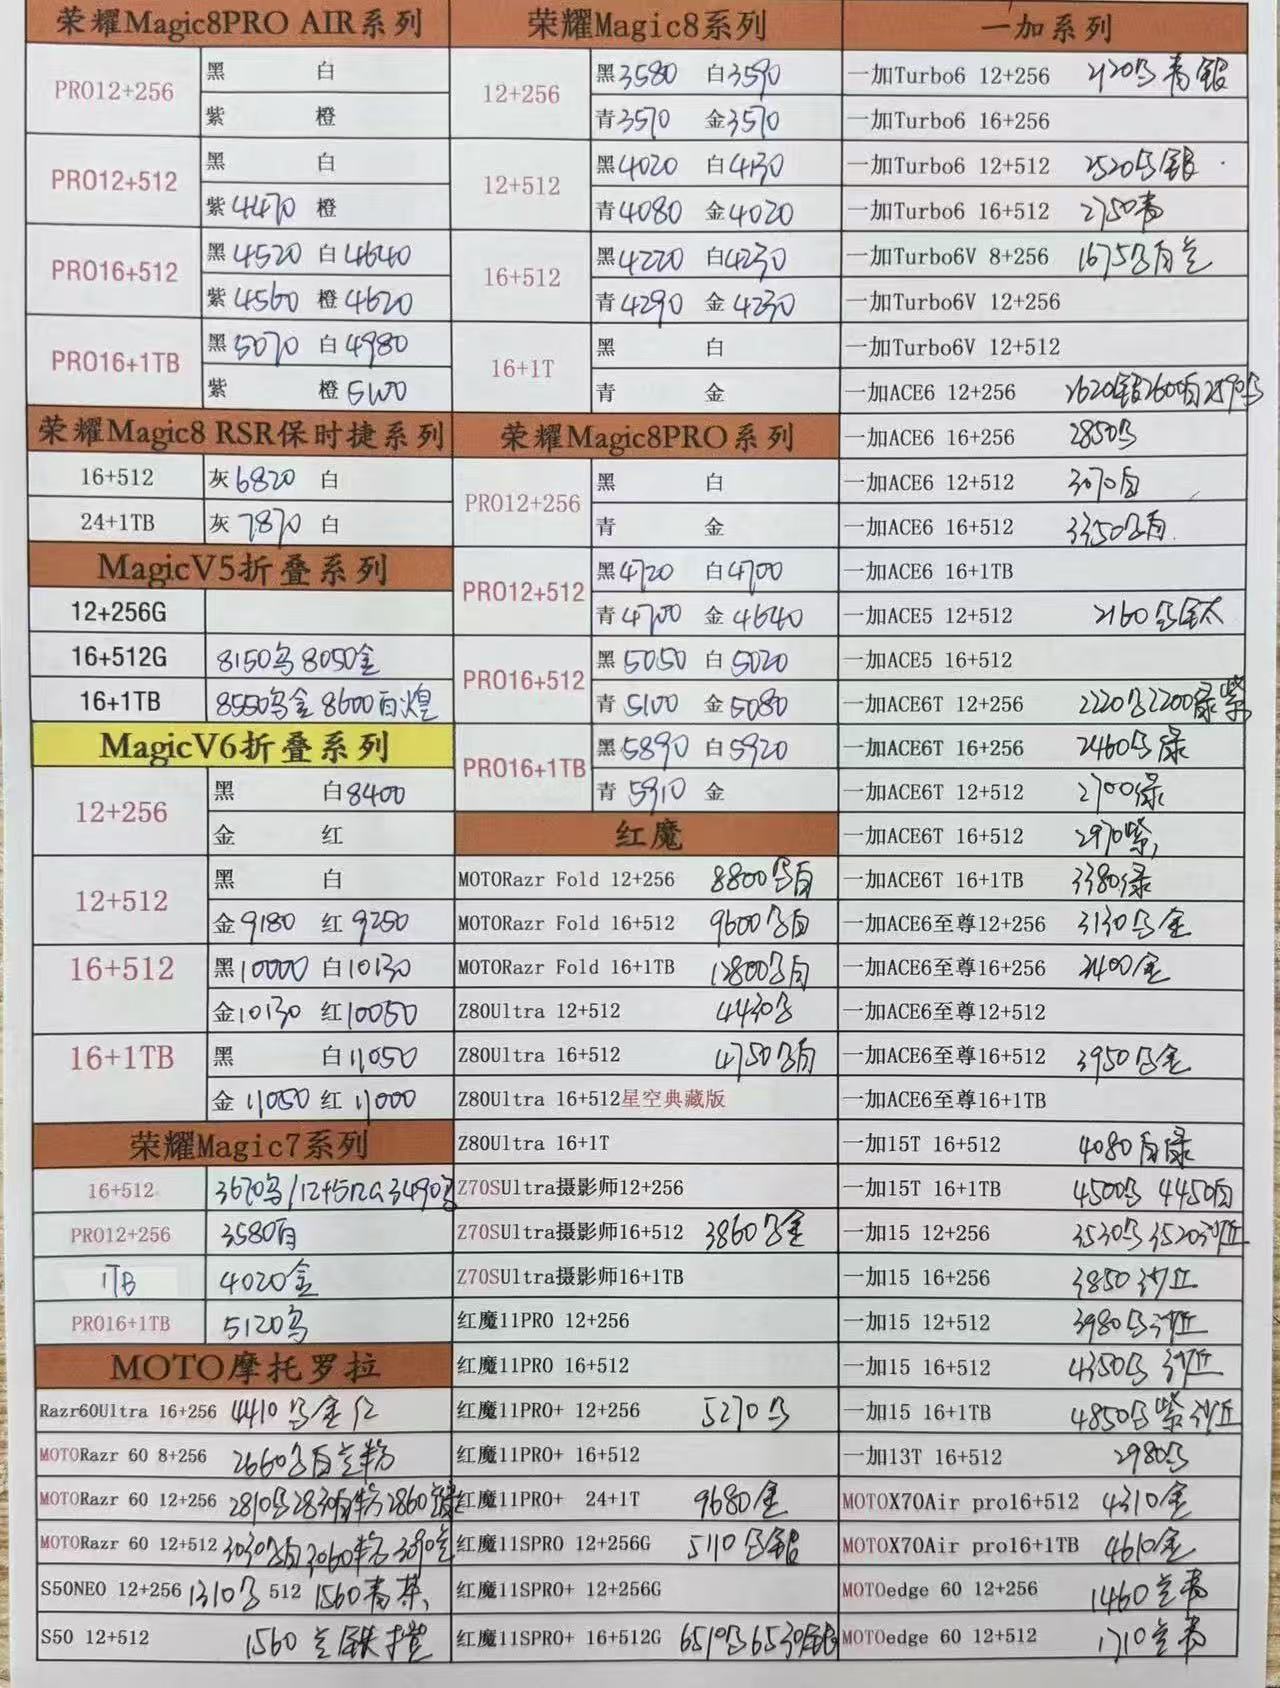 荣耀Magic8PRO AIR系列
PRO12+256 黑 白
紫 橙
PRO12+512 黑 白
紫4470 橙
PRO16+512 黑4520 白4640
紫4560 橙4620
PRO16+1TB 黑5070 白4980
紫 橙5100
荣耀Magic8 RSR保时捷系列
16+512 灰6820 白
24+1TB 灰7870 白
MagicV5折叠系列
12+256G
16+512G 8150乌8050金
16+1TB 8550乌金8600白煌
MagicV6折叠系列
12+256 黑 白8400
金 红
12+512 黑 白
金9180 红9250
16+512 黑10000 白10130
金10130 红10050
16+1TB 黑 白11050
金11050 红11000
荣耀Magic7系列
16+512 3670乌/12+512G3490乌
PRO12+256 3580白
1TB 4020金
PRO16+1TB 5120乌
MOTO摩托罗拉
Razr60Ultra 16+256 4410乌金红
MOTORazr 60 8+256 2660乌白兰粉
MOTORazr 60 12+256 2810乌2830白粉2860
MOTORazr 60 12+512 3030乌白3060粉3090兰
S50NEO 12+256 1310乌 512 1560青茶
S50 12+512 1560兰
荣耀Magic8系列
12+256 黑3580 白3590
青3570 金3570
12+512 黑4020 白4130
青4080 金4020
16+512 黑4220 白4230
青4290 金4230
16+1T 黑 白
青 金
荣耀Magic8PRO系列
PRO12+256 黑 白
青 金
PRO12+512 黑4720 白4700
青4700 金4640
PRO16+512 黑5050 白5020
青5100 金5080
PRO16+1TB 黑5890 白5920
青5910 金
红魔
MOTORazr Fold 12+256 8800乌白
MOTORazr Fold 16+512 9600乌白
MOTORazr Fold 16+1TB 12800乌白
Z80Ultra 12+512 4430乌
Z80Ultra 16+512 4750乌白
Z80Ultra 16+512星空典藏版
Z80Ultra 16+1T
Z70SUltra摄影师12+256
Z70SUltra摄影师16+512 3860乌金
Z70SUltra摄影师16+1TB
红魔11PRO 12+256
红魔11PRO 16+512
红魔11PRO+ 12+256 5270乌
红魔11PRO+ 16+512
红魔11PRO+ 24+1T 9680金
红魔11SPRO 12+256G 5110乌银
红魔11SPRO+ 12+256G
红魔11SPRO+ 16+512G 6510乌6530银
一加系列
一加Turbo6 12+256 2120乌青银
一加Turbo6 16+256
一加Turbo6 12+512 2520乌银
一加Turbo6 16+512 2750青
一加Turbo6V 8+256 1675乌白兰
一加Turbo6V 12+256
一加Turbo6V 12+512
一加ACE6 12+256 2620银2600白2590乌
一加ACE6 16+256 2850乌
一加ACE6 12+512 3070白
一加ACE6 16+512 3350乌白
一加ACE6 16+1TB
一加ACE5 12+512 2160乌钛
一加ACE5 16+512
一加ACE6T 12+256 2220乌2200绿紫
一加ACE6T 16+256 2460乌绿
一加ACE6T 12+512 2700绿
一加ACE6T 16+512 2970紫
一加ACE6T 16+1TB 3380绿
一加ACE6至尊12+256 3130乌金
一加ACE6至尊16+256 3400金
一加ACE6至尊12+512
一加ACE6至尊16+512 3950乌金
一加ACE6至尊16+1TB
一加15T 16+512 4080白绿
一加15T 16+1TB 4500乌 4450白
一加15 12+256 3530乌3520沙丘
一加15 16+256 3850沙丘
一加15 12+512 3980乌沙丘
一加15 16+512 4350乌 沙丘
一加15 16+1TB 4850乌紫沙丘
一加13T 16+512 2980乌
MOTOX70Air pro16+512 4310金
MOTOX70Air pro16+1TB 4610金
MOTOedge 60 12+256 1460兰青
MOTOedge 60 12+512 1710兰青